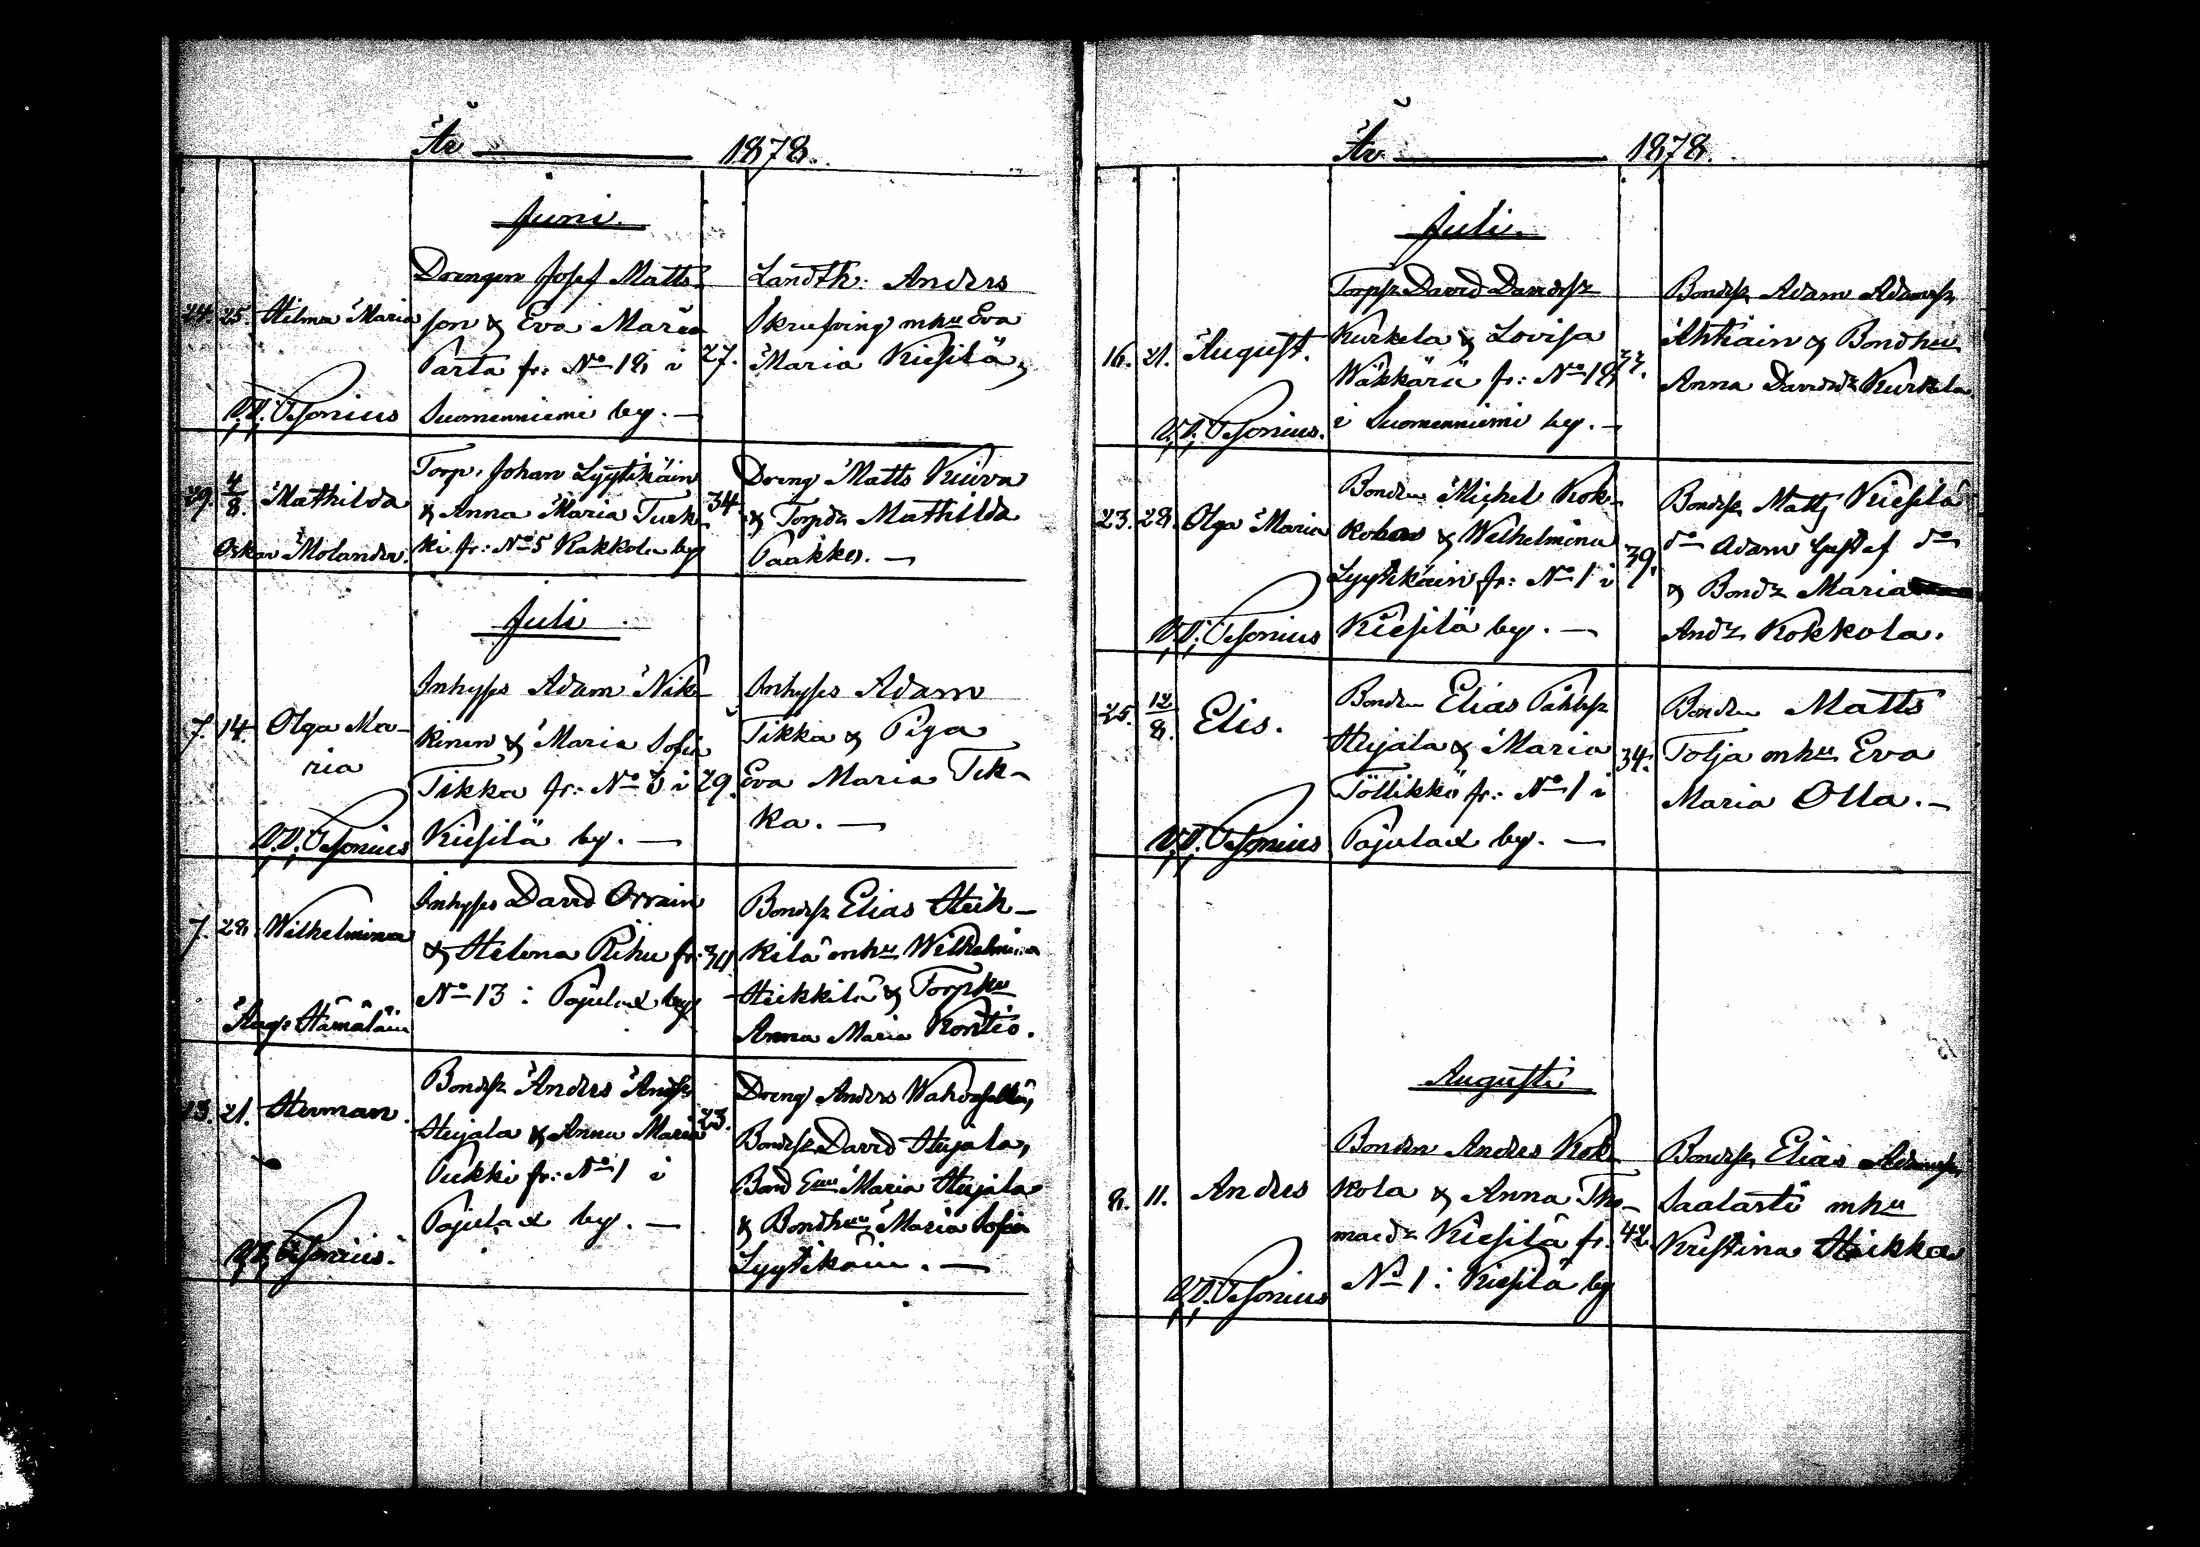 År 1878.
Juni.
24. 25. Hilma Maria
V.P. Pesonius
Drengen Josef Matts-
son & Eva Maria
Parta fr: No 18 i
Suomenniemi by. —
27.
Landth: Anders
Skrufving mhu Eva
Maria Kiesilä,
29. 4/8. Mathilda
Oskar Molander.
Torp. Johan Lyytikäin
& Anna Maria Turk-
ki fr: No 5 Kakkola by
34.
Dreng Matts Kiurva
& Torpdr Mathilda
Paakko. —
Juli.
7. 14. Olga Ma-
ria
V.P. Pesonius
Inhyses Adam Nik-
kinen & Maria Sofia
Tikka fr: No 3 i
Kiesilä by. —
29.
Inhyses Adam
Tikka & Piga
Eva Maria Tik-
ka. —
7. 28. Wilhelmina
Aug: Hämäläin
Inhyses David Orrain
& Helena Rihu fr:
No 13 i Pajula by
Bondesr Elias Heik-
kilä mhu Wilhelmina
Heikkilä & Torphu
Anna Maria Kontio.
13. 21. Herman.
V.P. Pesonius.
Bondesr Anders Andsr
Heijala & Anna Maria
Pukki fr: No 1 i
Pajula by. —
23.
Dreng Anders
Bondesr David Heijala,
Bond Enu Maria Heijala
& Bondhu Maria Sofia
Lyytikäin. —
År 1878.
Juli.
16. 21. August.
V.P. Pesonius.
Torpsr David Davidsr
Kurkela & Lovisa
Wäkkärä fr: No 18
i Suomenniemi by. —
Bondesr Adam Adamsr
Ahtiain & Bondhu
Anna Davidsdr Kurkela
23. 28. Olga Maria
V.P. Pesonius
Bonden Michel Kok-
kolas & Wilhelmina
Lyytikäin fr: No 1 i
Kiesilä by. —
39.
Bondesr Matts Kiesilä
do Adam Gustaf do
& Bondr Maria
Andr Kokkola.
25. 12/8. Elis.
V.P. Pesonius
Bonden Elias Påhlsr
Heijala & Maria
Töllikkö fr: No 1 i
Pajula by. —
34.
Bonden Matts
Tolja mhu Eva
Maria Olla. —
Augusti
8. 11. Anders
V.P. Pesonius
Bonden Anders Kok-
kola & Anna Tho-
maedr Kiesilä fr:
No 1 i Kiesilä by
42.
Bondesr Elias Adamsr
Saalasti mhu
Kristina Heikka